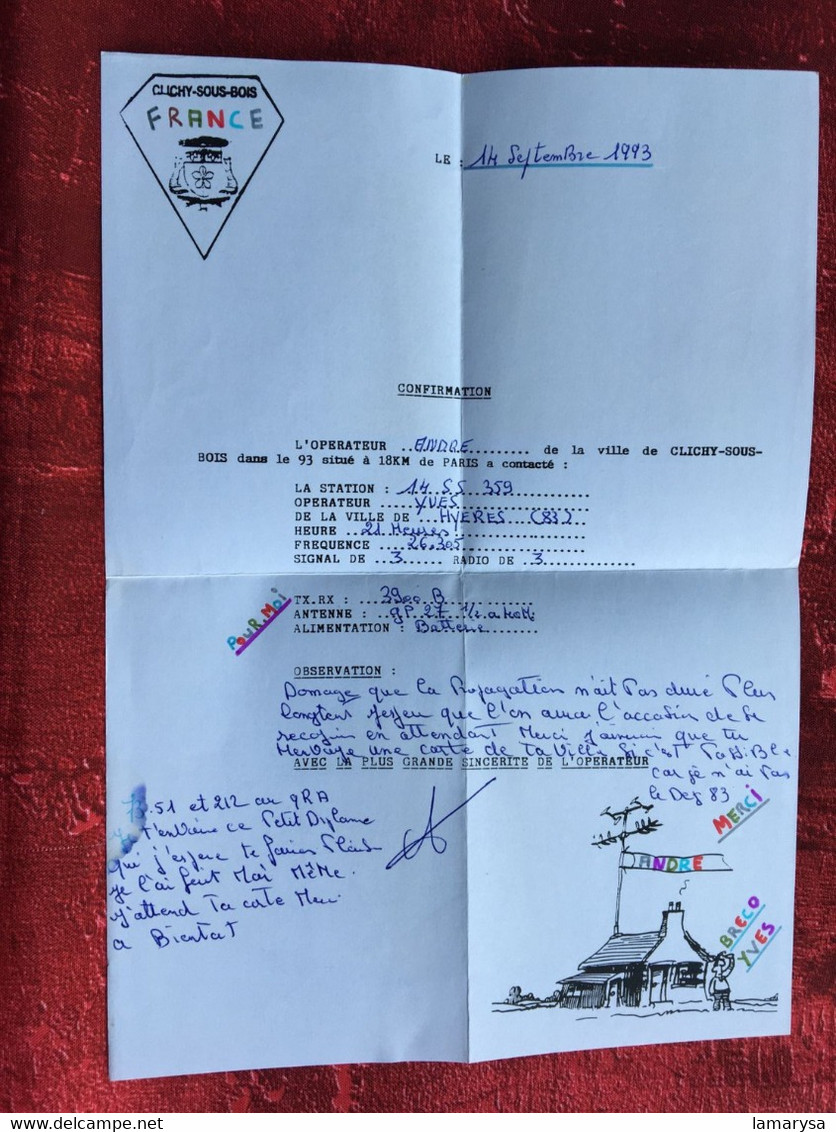 CLICHY-SOUS-BOIS
FRANCE
LE : 14 Septembre 1993
CONFIRMATION
L'OPERATEUR ..ANDRE......... de la ville de CLICHY-SOUS-
BOIS dans le 93 situé à 18KM de PARIS a contacté :
LA STATION : 14 SS 359
OPERATEUR ....YVES
DE LA VILLE DE ...HYERES (83)
HEURE ..21 Heures!
FREQUENCE ...26.305
SIGNAL DE ...3.... RADIO DE .3
POUR MOI
TX.RX : ..3900 B
ANTENNE : .GP.27 1/2
ALIMENTATION : Batterie
OBSERVATION :
Domage que la Propagation n'ait Pas duré Plus
longtent que l'on aura l'accasion de Se
en attendant Merci j'aimerai que tu
une carte de Ta Ville Si c'est Possible
AVEC LA PLUS GRANDE SINCERITE DE L'OPERATEUR
car je n'ai Pas
le Dep 83
73.51 et 212 au QRA
ce Petit Diplome
qui j'espere te
je l'ai fait Moi MêMe.
j'attend Ta carte Merci
a Bientot
MERCI
ANDRE
BRECO
YVES
lamarysa